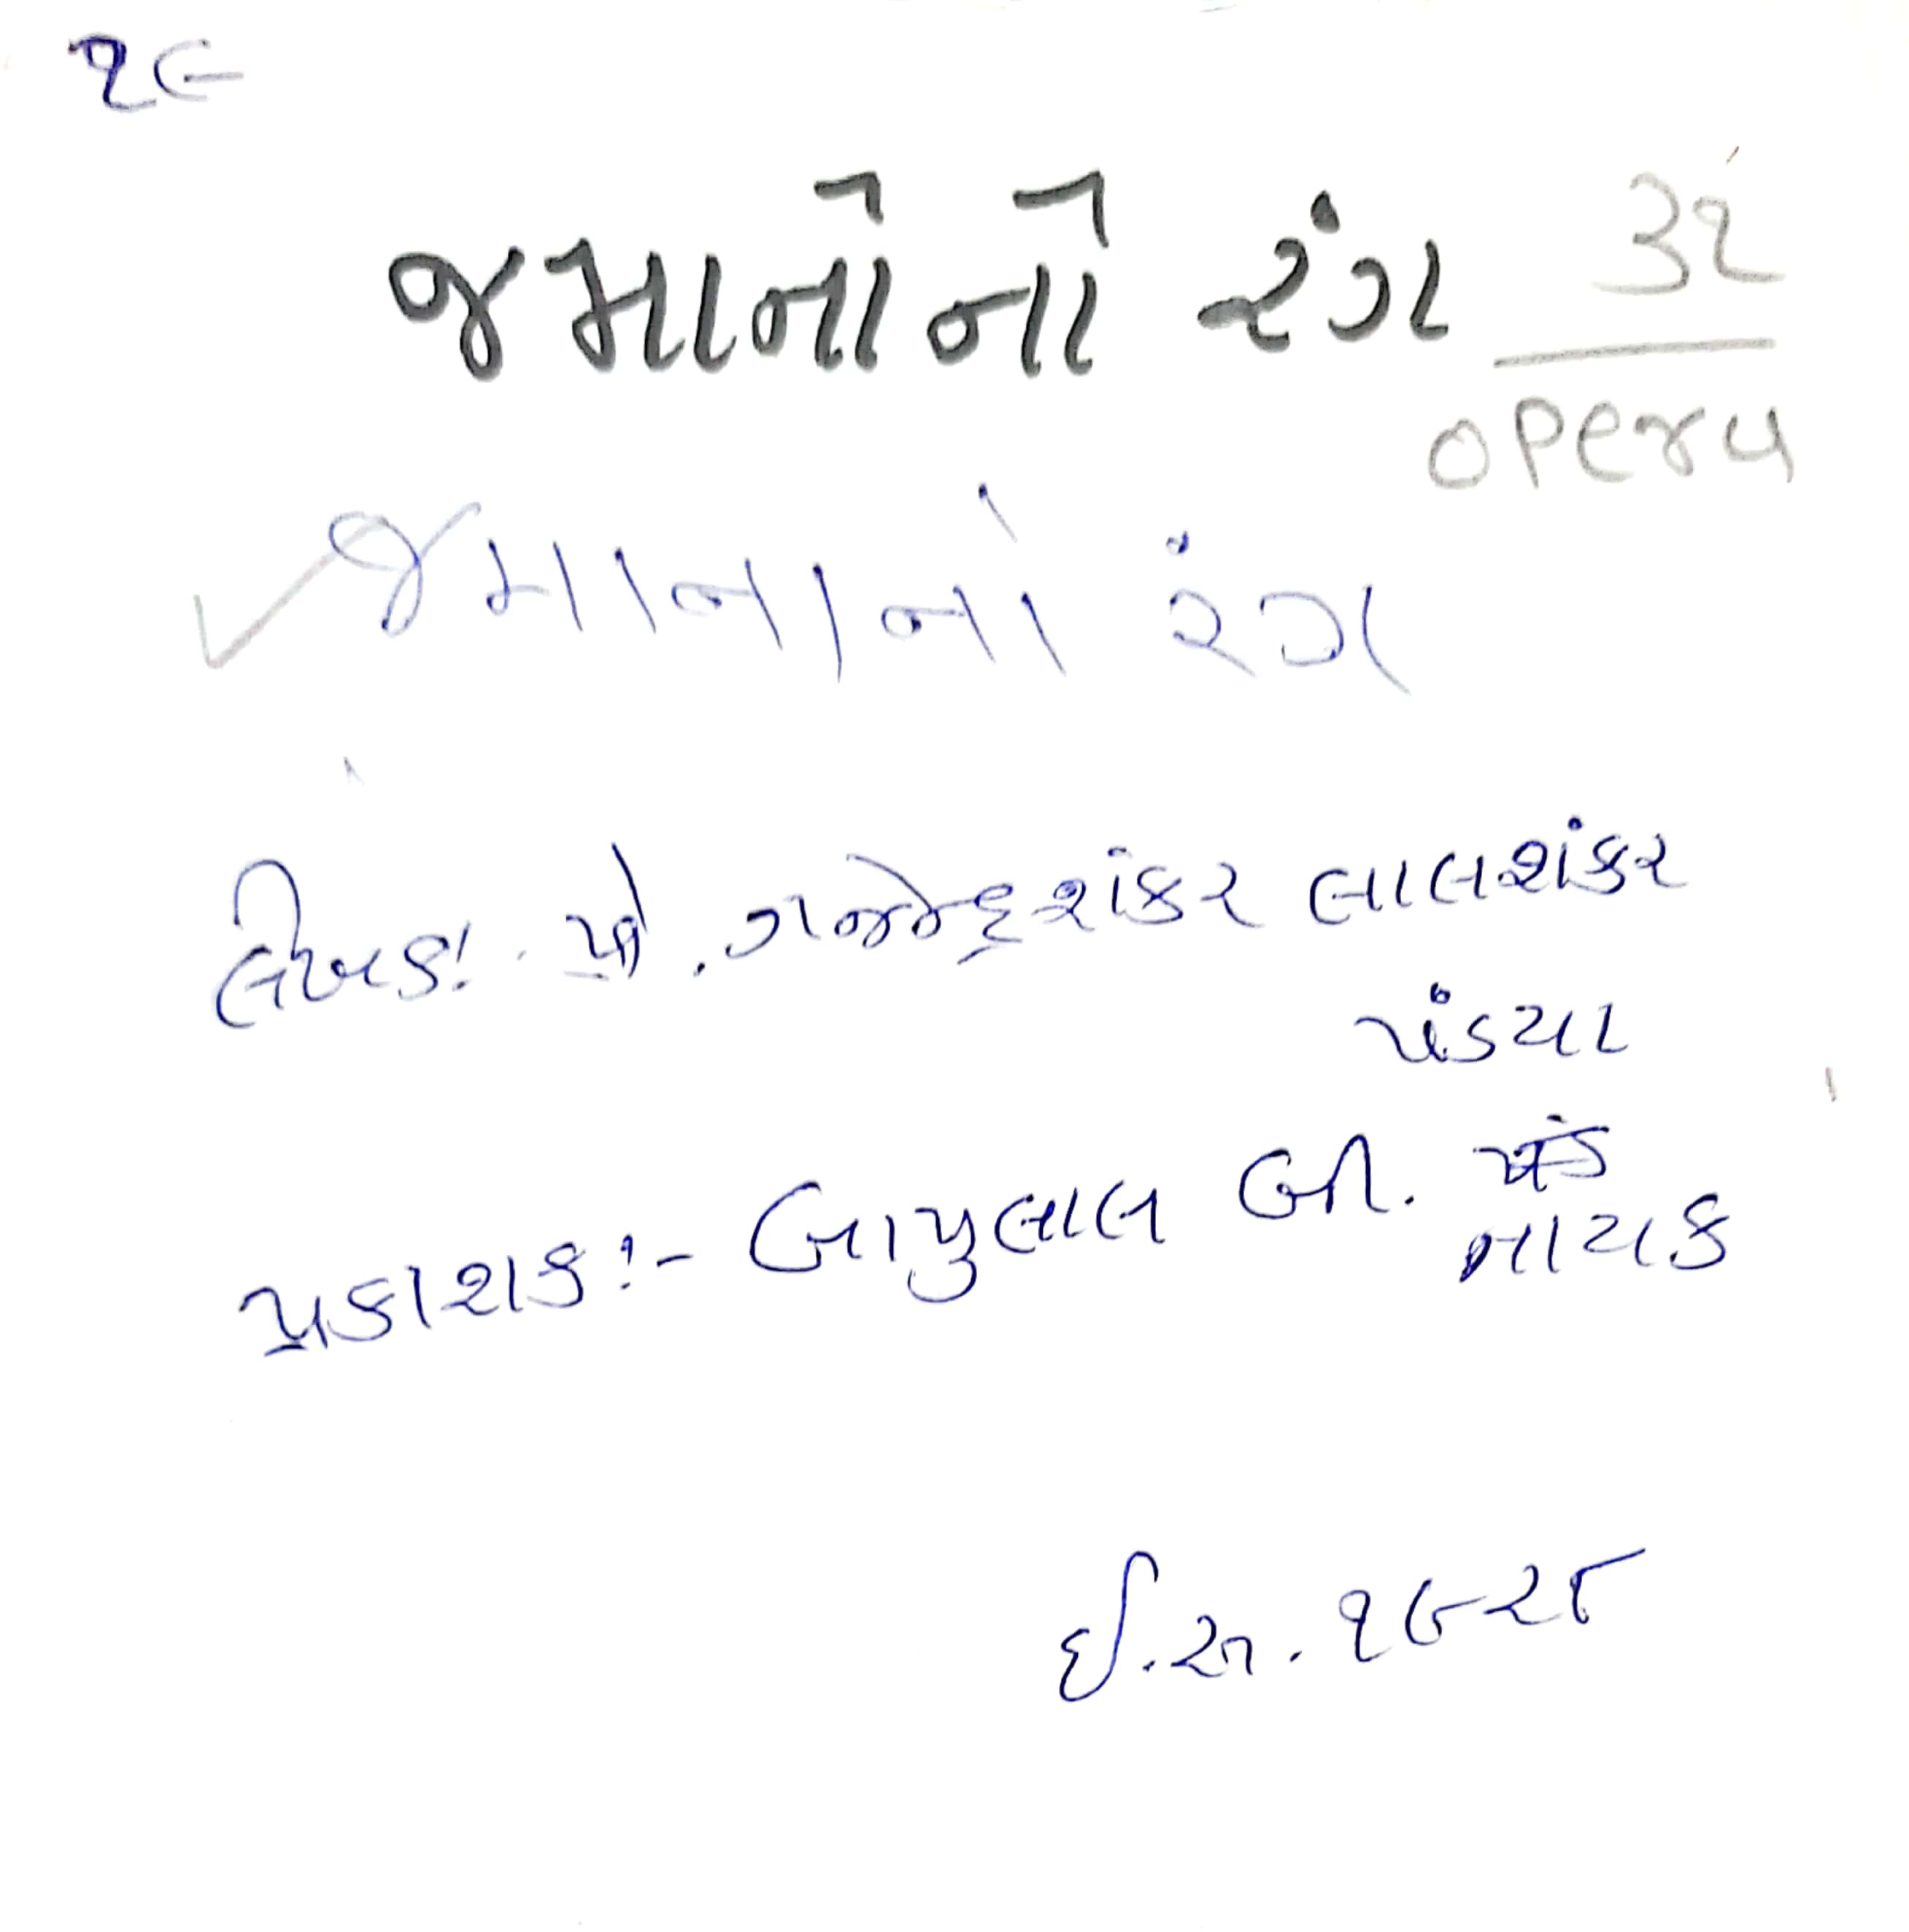 ૧૯
જમાનોનો રંગ ૩૨
opera
જમાનાનો રંગ
લેખક: પ્રો. ગજેન્દ્રશંકર લાલશંકર
પંડયા
પ્રકાશક:- બાપુલાલ બી. નાયક
ઈ.સ. ૧૯૨૮